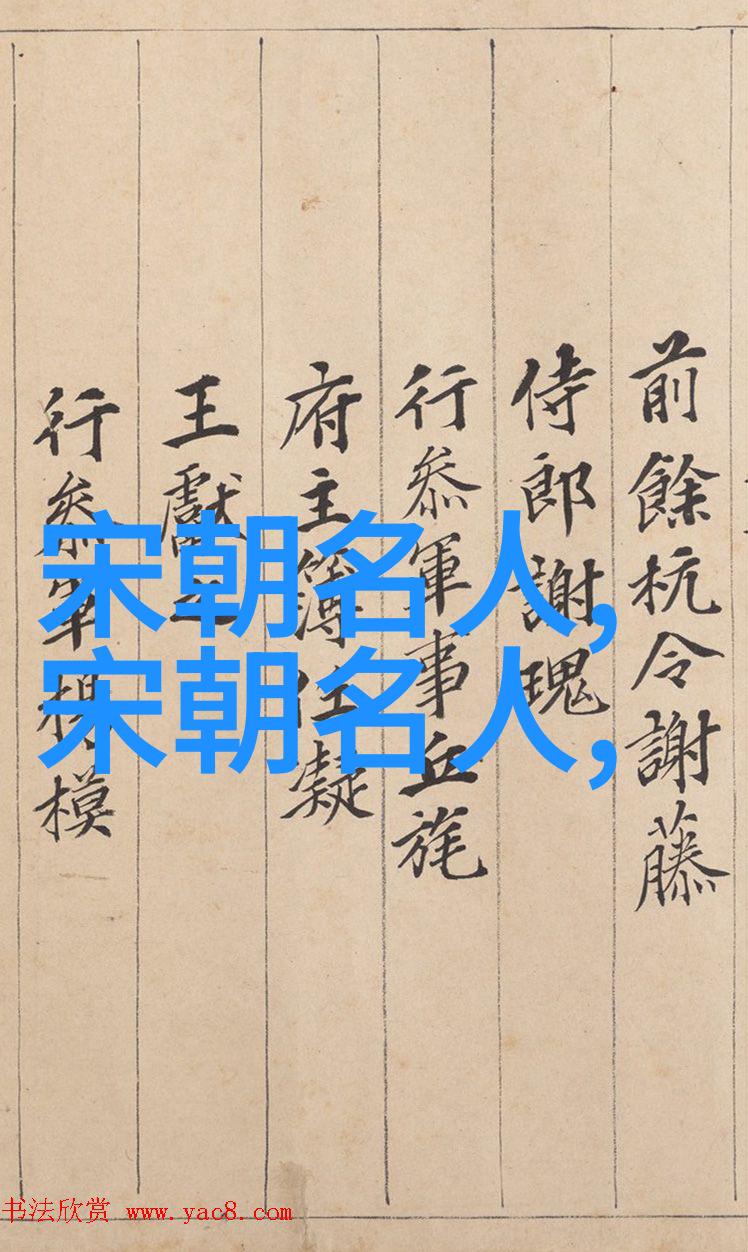 前餘杭令謝藤
侍郎謝瑰
行叅軍事丘旄
府主簿任凝
王獻之
行叅軍楊模
宋朝名人,
宋朝名人,
书法欣赏 www.yac8.com